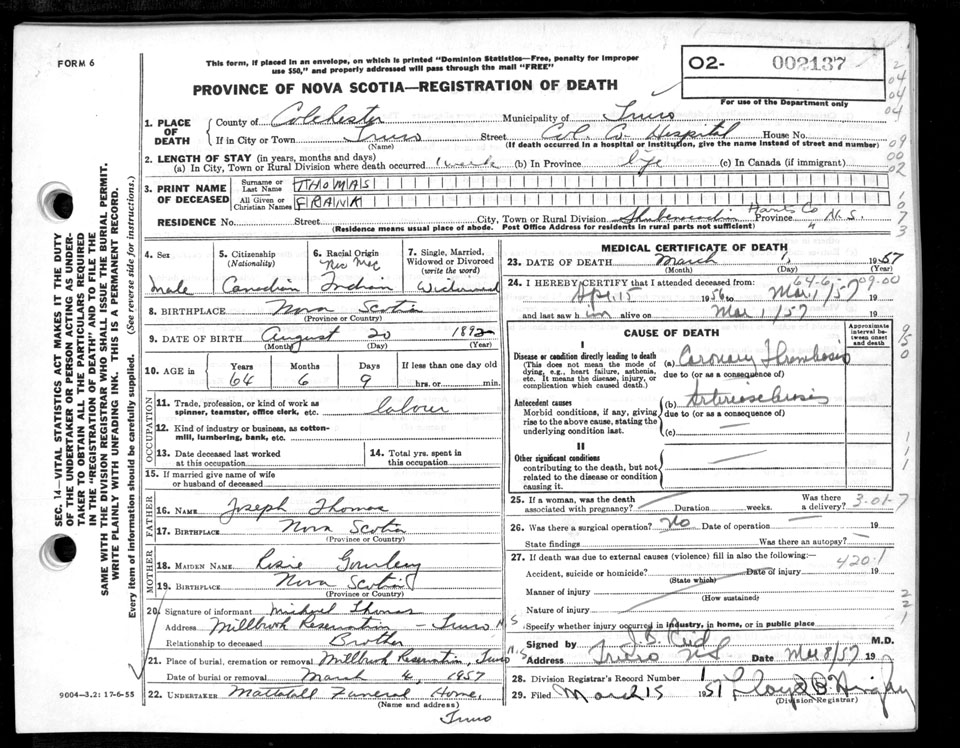 FORM 6
This form, if placed in an envelope, on which is printed "Dominion Statistics—Free, penalty for improper use $50," and properly addressed will pass through the mail "FREE"
O2- 002137
For use of the Department only
PROVINCE OF NOVA SCOTIA—REGISTRATION OF DEATH
1. PLACE OF DEATH
County of Colchester Municipality of Truro
If in City or Town Truro Street Col. Co. Hospital House No.
(Name) (If death occurred in a hospital or institution, give the name instead of street and number)
2. LENGTH OF STAY (in years, months and days)
(a) In City, Town or Rural Division where death occurred 1 week (b) In Province life (c) In Canada (if immigrant)
3. PRINT NAME OF DECEASED
Surname or Last Name THOMAS
All Given or Christian Names FRANK
RESIDENCE No. Street City, Town or Rural Division Shubenacadie Hants Co Province N.S.
(Residence means usual place of abode. Post Office Address for residents in rural parts not sufficient)
4. Sex male
5. Citizenship (Nationality) Canadian
6. Racial Origin Mic Mac Indian
7. Single, Married, Widowed or Divorced (write the word) Widowed
8. BIRTHPLACE Nova Scotia
(Province or Country)
9. DATE OF BIRTH August 20 1892
(Month) (Day) (Year)
10. AGE in Years 64 Months 6 Days 9 If less than one day old hrs. or min.
OCCUPATION
11. Trade, profession, or kind of work as spinner, teamster, office clerk, etc. labour
12. Kind of industry or business, as cotton-mill, lumbering, bank, etc.
13. Date deceased last worked at this occupation
14. Total yrs. spent in this occupation
15. If married give name of wife or husband of deceased
FATHER
16. NAME Joseph Thomas
17. BIRTHPLACE Nova Scotia
(Province or Country)
MOTHER
18. MAIDEN NAME Lisie Gourley
19. BIRTHPLACE Nova Scotia
(Province or Country)
20. Signature of informant Michael Thomas
Address Millbrook Reservation - Truro N.S.
Relationship to deceased Brother
21. Place of burial, cremation or removal Millbrook Reservation, Truro N.S
Date of burial or removal March 4, 1957
22. UNDERTAKER Mattatall Funeral Home,
(Name and address)
Truro
9004—3.2: 17-6-55
MEDICAL CERTIFICATE OF DEATH
23. DATE OF DEATH March 1, 1957
(Month) (Day) (Year)
24. I HEREBY CERTIFY that I attended deceased from:
64-6-09-00
Apl. 15 1956 to Mar 1/57 19
and last saw him alive on Mar 1/57 19
CAUSE OF DEATH
Approximate interval between onset and death
I
Disease or condition directly leading to death (This does not mean the mode of dying, e.g., heart failure, asthenia, etc. It means the disease, injury, or complication which caused death.)
(a) Coronary Thrombosis
due to (or as a consequence of)
Antecedent causes
Morbid conditions, if any, giving rise to the above cause, stating the underlying condition last.
(b) Arteriosclerosis
due to (or as a consequence of)
(c)
II
Other significant conditions contributing to the death, but not related to the disease or condition causing it.
25. If a woman, was the death associated with pregnancy? Duration weeks. Was there a delivery? 3-01-7
26. Was there a surgical operation? No Date of operation 19
State findings Was there an autopsy?
27. If death was due to external causes (violence) fill in also the following:
420.1
Accident, suicide or homicide? Date of injury 19
(State which)
Manner of injury
(How sustained)
Nature of injury
Specify whether injury occurred in industry, in home, or in public place
Signed by J. B. Reid M.D.
Address Truro N S Date Mar 8/57 19
28. Division Registrar's Record Number
29. Filed March 15 1957
(Division Registrar)
SEC. 14—VITAL STATISTICS ACT MAKES IT THE DUTY OF THE UNDERTAKER OR PERSON ACTING AS UNDERTAKER TO OBTAIN ALL THE PARTICULARS REQUIRED IN THE "REGISTRATION OF DEATH" AND TO FILE THE SAME WITH THE DIVISION REGISTRAR WHO SHALL ISSUE THE BURIAL PERMIT.
WRITE PLAINLY WITH UNFADING INK. THIS IS A PERMANENT RECORD.
Every item of information should be carefully supplied. (See reverse side for instructions.)